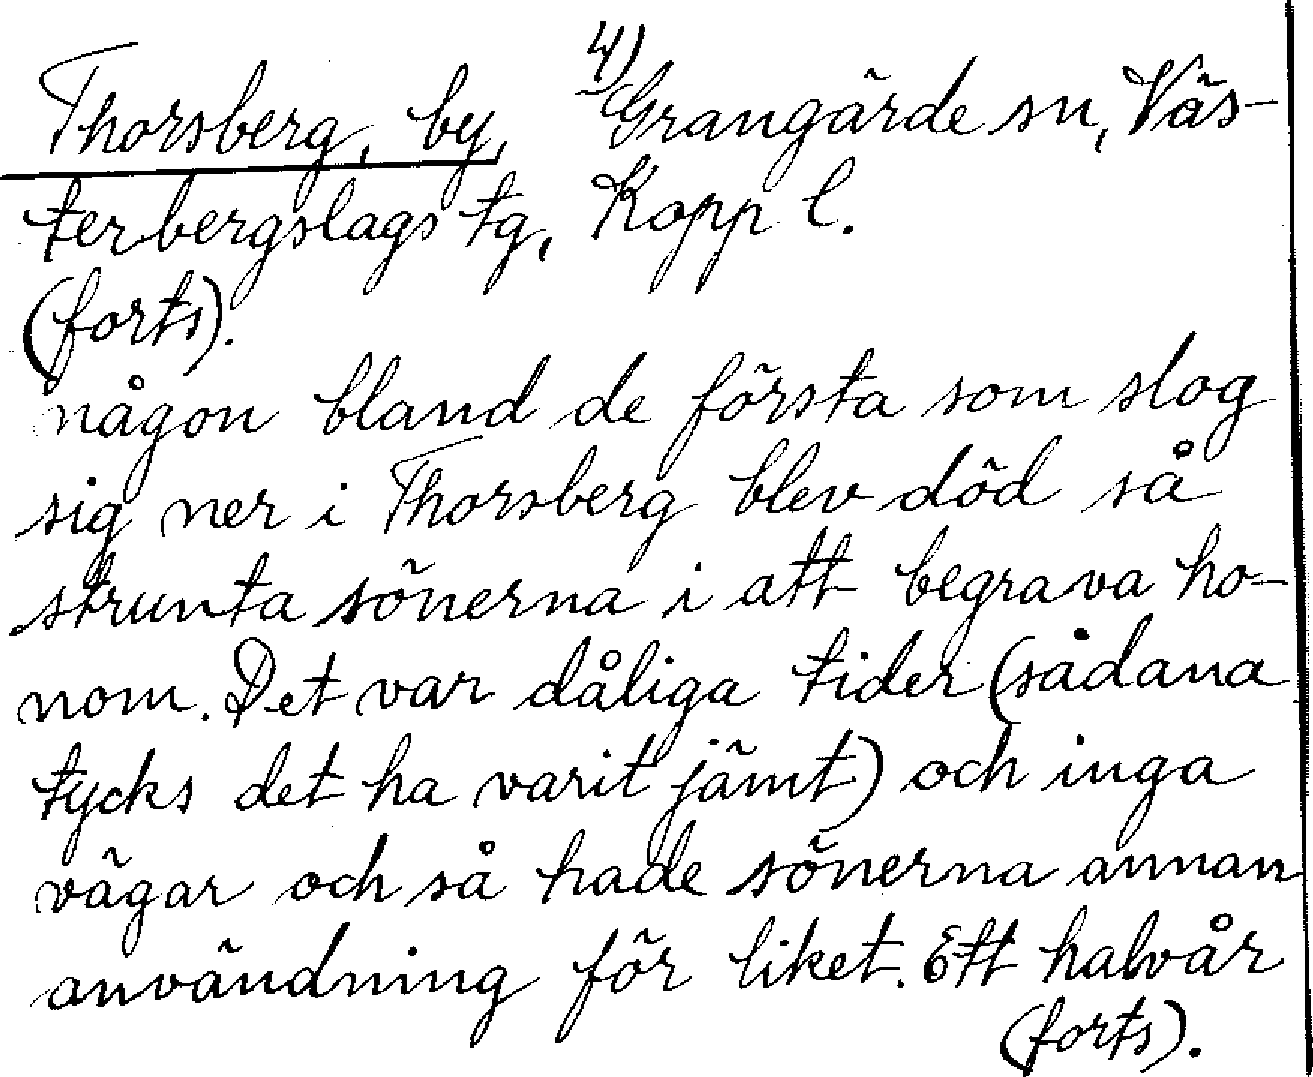 4)
Thorsberg, by, Grangärde sn, Väs-
terbergslags tg, Kopp l.
(forts).
någon bland de första som slog
sig ner i Thorsberg blev död så
strunta sönerna i att begrava ho-
nom. Det var dåliga tider (sådana
tycks det ha varit jämt) och inga
vägar och så hade sönerna annan
användning för liket. Ett halvår
(forts).